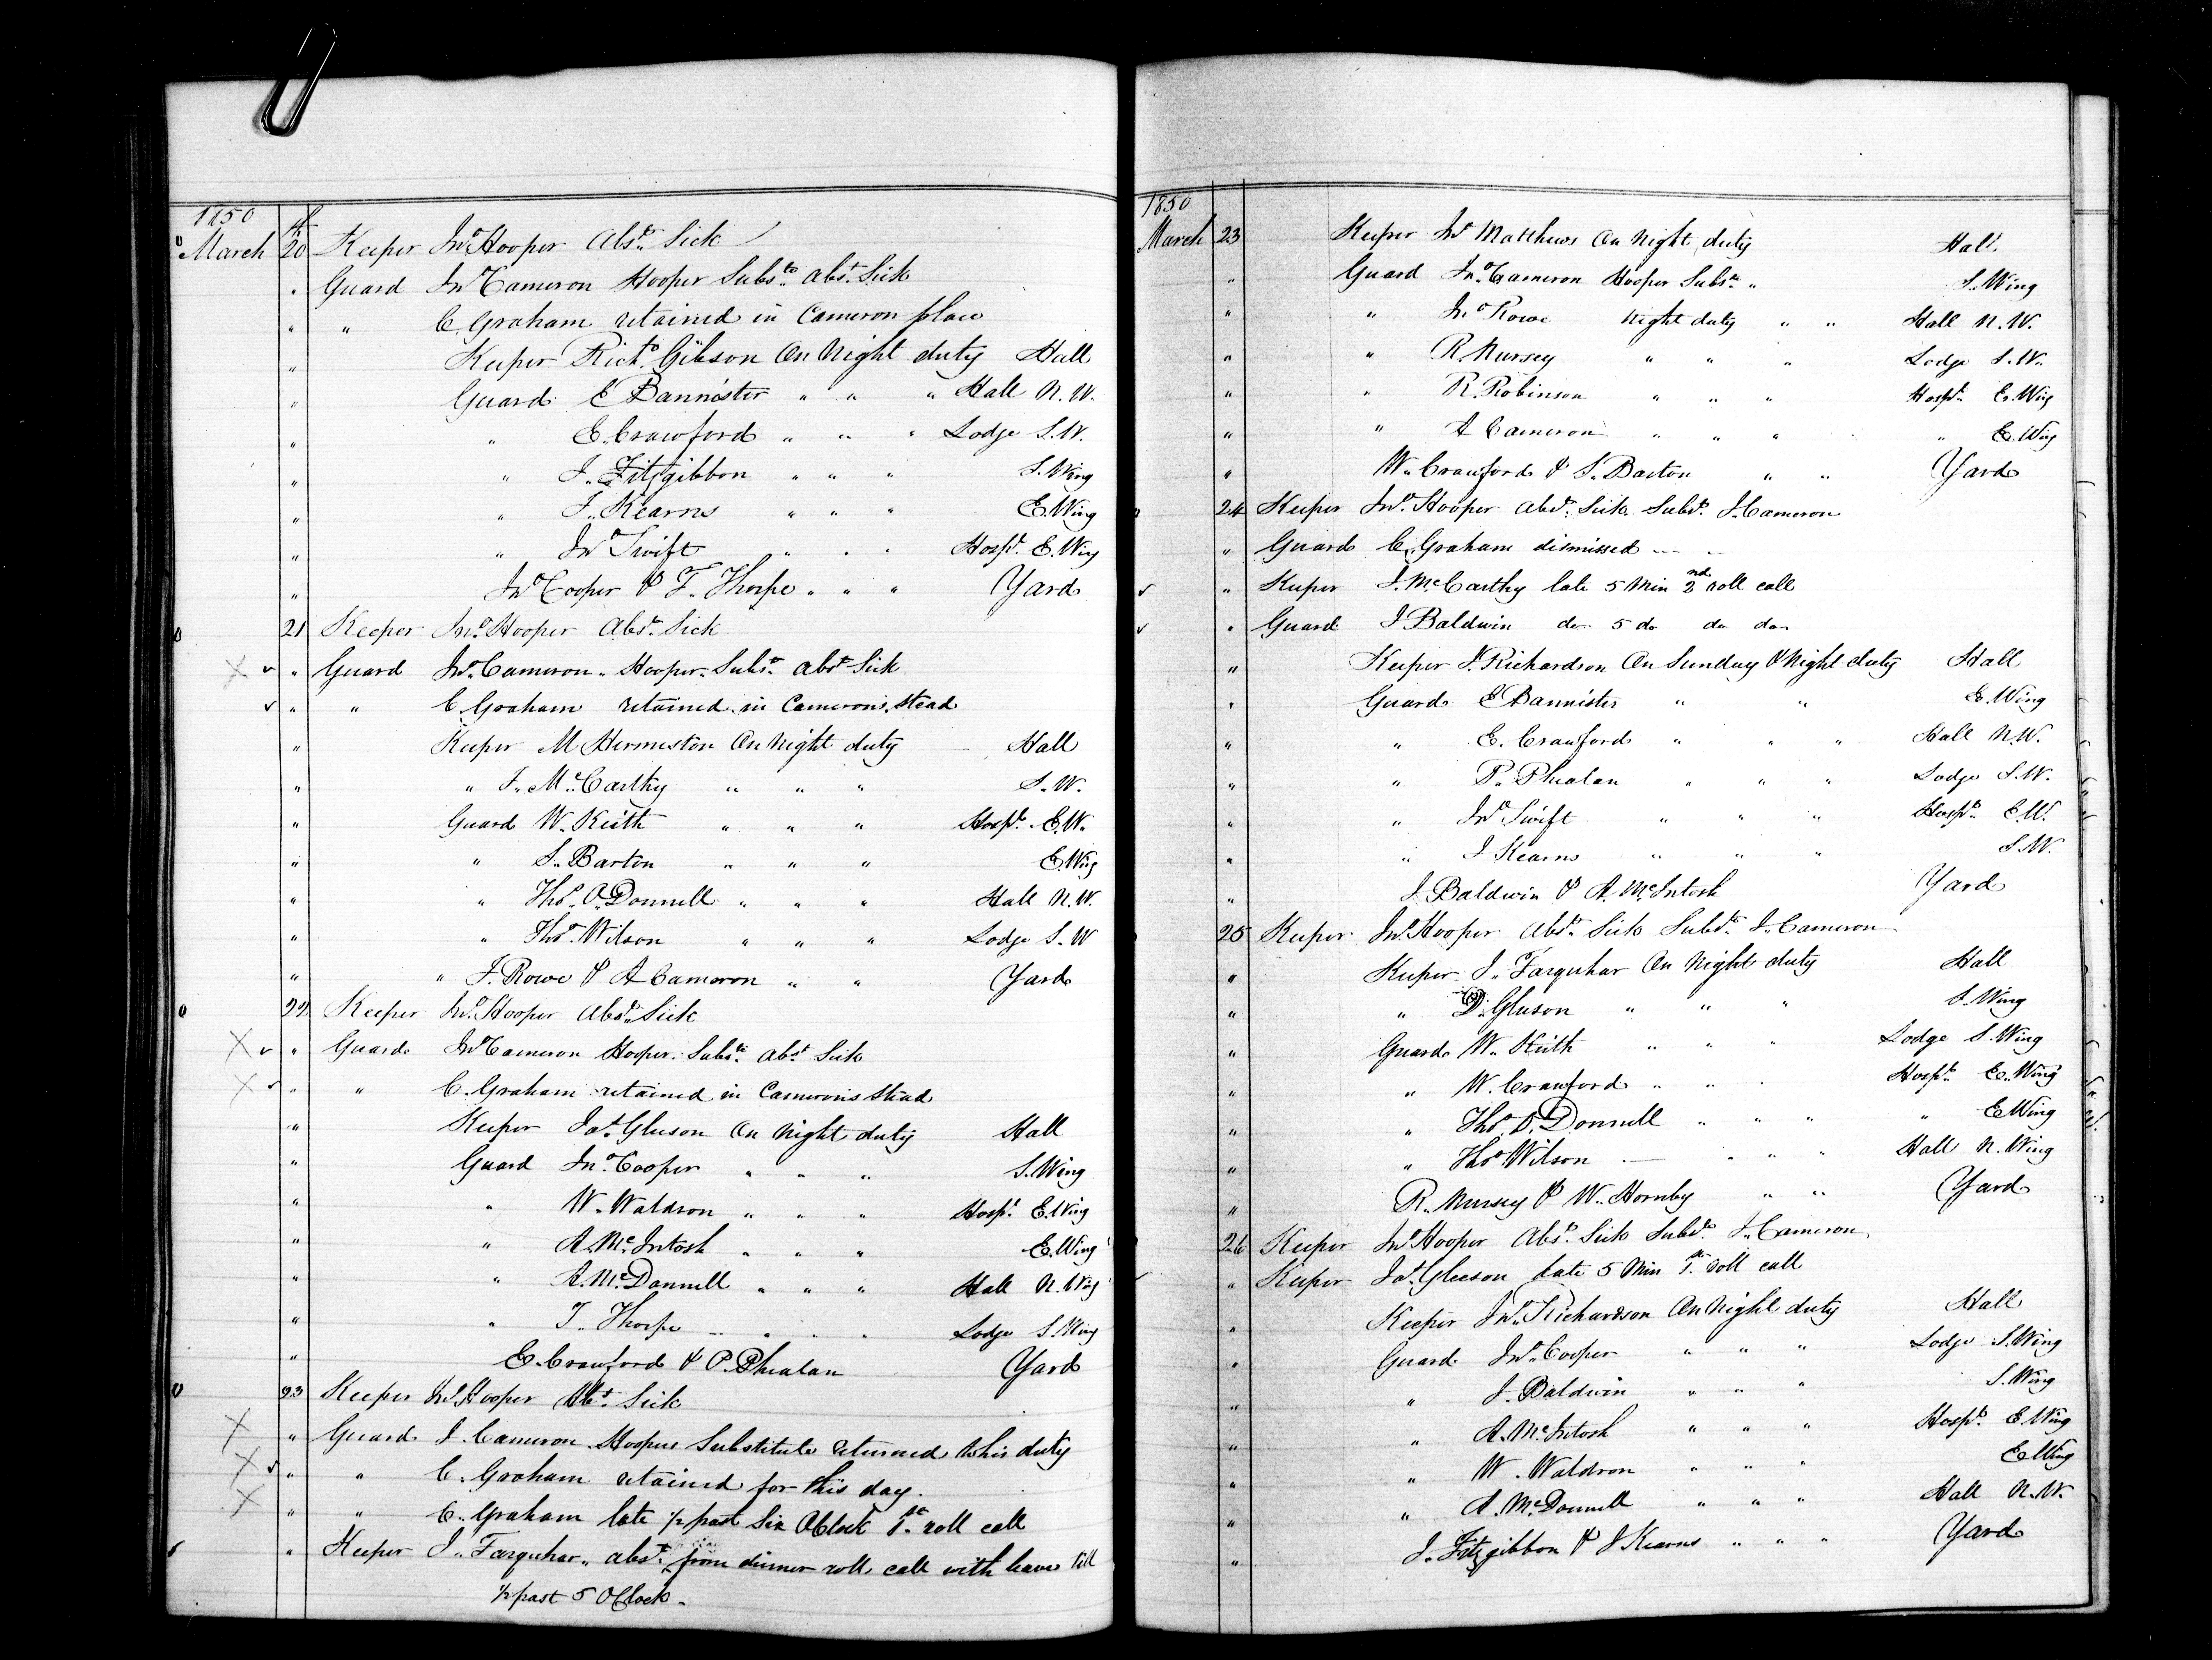 1850
March 20 Keeper Jno Hooper Abst. Sick
" Guard Jno Cameron Hooper Subste. abst. Sick
" " C. Graham retained in Cameron place
" Keeper Richd. Gibson On Night duty Hall
" Guard E Bannister " " " Hall N.W.
" " E. Crawford " " " Lodge S.W.
" " J. Fitzgibbon " " " S. Wing
" " J. Kearns " " " E. Wing
" " Jno Swift " " " Hospl. E. Wing
" Jno Cooper & T. Thorpe " " " Yard
21 Keeper Jno. Hooper Abst. Sick
X " Guard Jno. Cameron. Hooper. Subste. abst. Sick
" " C. Graham retained in Camerons Stead
" Keeper M Hermiston On Night duty Hall
" " J. McCarthy " " " S.W.
" Guard W. Keith " " " Hospl. E.W.
" " S. Barton " " " E. Wing
" " Thos. O.Donnell " " " Hall N.W.
" " Thos. Wilson " " " Lodge S.W
" " J. Rowe & A Cameron " " Yard
22 Keeper Jno. Hooper Abst. Sick
X " Guard Jno Cameron Hooper. Subste. abst Sick
X " " C. Graham retained in Camerons Stead
" Keeper Jas. Gleeson On Night duty Hall
" Guard Jno. Cooper " " " S. Wing
" " W. Waldron " " " Hospl. E. Wing
" " A. McIntosh " " " E. Wing
" " A. McDonnell " " " Hall N. Wing
" " T. Thorpe " " " Lodge S. Wing
" E. Crawford & P. Phealan Yard
23 Keeper Jno. Hooper Abst. Sick
X " Guard J. Cameron. Hoopers Substitute returned to his duty
X " " C. Graham retained for this day.
X " " C. Graham late 1/2 past Six OClock 1st. roll call
" Keeper J. Farquhar. abst. from dinner roll call with leave till
1/2 past 5 OClock.
1850
March 23 Keeper Jno Matthews On Night duty Hall.
" Guard Jno. Cameron Hooper Subste. " S. Wing
" " Jno Rowe Night duty " " Hall N.W.
" " R. Nursey " " " Lodge S.W.
" " R. Robinson " " " Hospl. E. Wing
" " A Cameron " " " " E. Wing
" W. Crawford & S. Barton " " Yard
24 Keeper Jno. Hooper abst. Sick Subst. J. Cameron
" Guard C. Graham dismissed
" Keeper J. McCarthy late 5 Min 2nd roll call
" Guard J Baldwin do. 5 do do do
" Keeper J. Richardson On Sunday & Night duty Hall
" Guard E Bannister " " E. Wing
" " E. Crawford " " " Hall N.W.
" " P. Phealan " " " Lodge S.W.
" " Jno Swift " " " Hospl. E.W.
" " J Kearns " " " S.W.
" J Baldwin & A. McIntosh Yard
25 Keeper Jno. Hooper Abst. Sick Subst. J. Cameron
" Keeper J. Farquhar On Night duty Hall
" " D. Gleeson " " " S. Wing
" Guard W. Keith " " " Lodge S. Wing
" " W. Crawford " " " Hospl. E. Wing
" " Thos. O.Donnell " " " " E Wing
" " Thos Wilson " " " Hall N. Wing
" R. Nursey & W. Hornby " " Yard
26 Keeper Jno. Hooper Abst. Sick Subst. J. Cameron
" Keeper Jas. Gleeson late 5 Min 1st. roll call
" Keeper Jno. Richardson On Night duty Hall
" Guard Jno. Cooper " " " Lodge S. Wing
" " J. Baldwin " " " S. Wing
" " A. McIntosh " " " Hospl. E. Wing
" " W. Waldron " " " E Wing
" " A. McDonnell " " " Hall N.W.
" J. Fitzgibbon & J Kearns " " " Yard